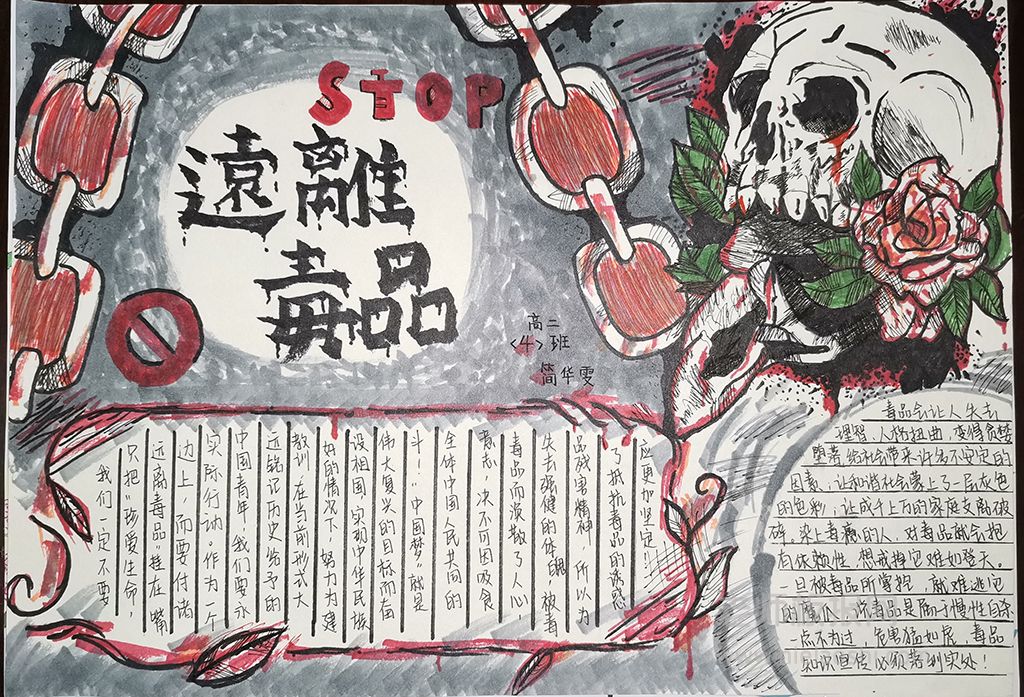 STOP
遠離
毒品
高二
<4>班
简华雯
我们一定不要
只把“珍爱生命，
远离毒品”挂在嘴
边上，而要付诸
实际行动。作为一个
中国青年，我们要永
远铭记历史给予的
教训，在当前形式大
好的情况下，努力为建
设祖国，实现中华民族
伟大复兴的目标而奋
斗！“中国梦”就是
全体中国人民共同的
意志，决不可因吸食
毒品而溃散了人心，
失去强健的体魄，被毒
品残害精神，所以为
了抵抗毒品的诱惑
应更加坚定！
毒品会让人失去
理智，人格扭曲，变得贪婪
堕落，给社会带来许多不安定的
因素，让和谐社会蒙上了一层灰色
的色彩；让成千上万的家庭支离破
碎。染上毒瘾的人，对毒品就会抱
有依赖性，想戒掉它难如登天。
一旦被毒品所掌控，就难逃它
的魔爪，说毒品是属于慢性自杀
一点不为过，危害猛如虎，毒品
知识宣传必须落到实处！